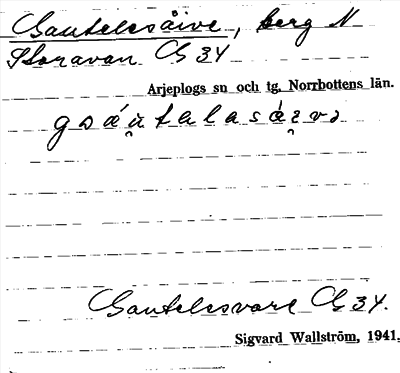 Gautelesåive, berg N
Storavan G 34
Arjeplogs sn och tg, Norrbottens län.
Gautelesvare G 34.
Sigvard Wallström, 1941.